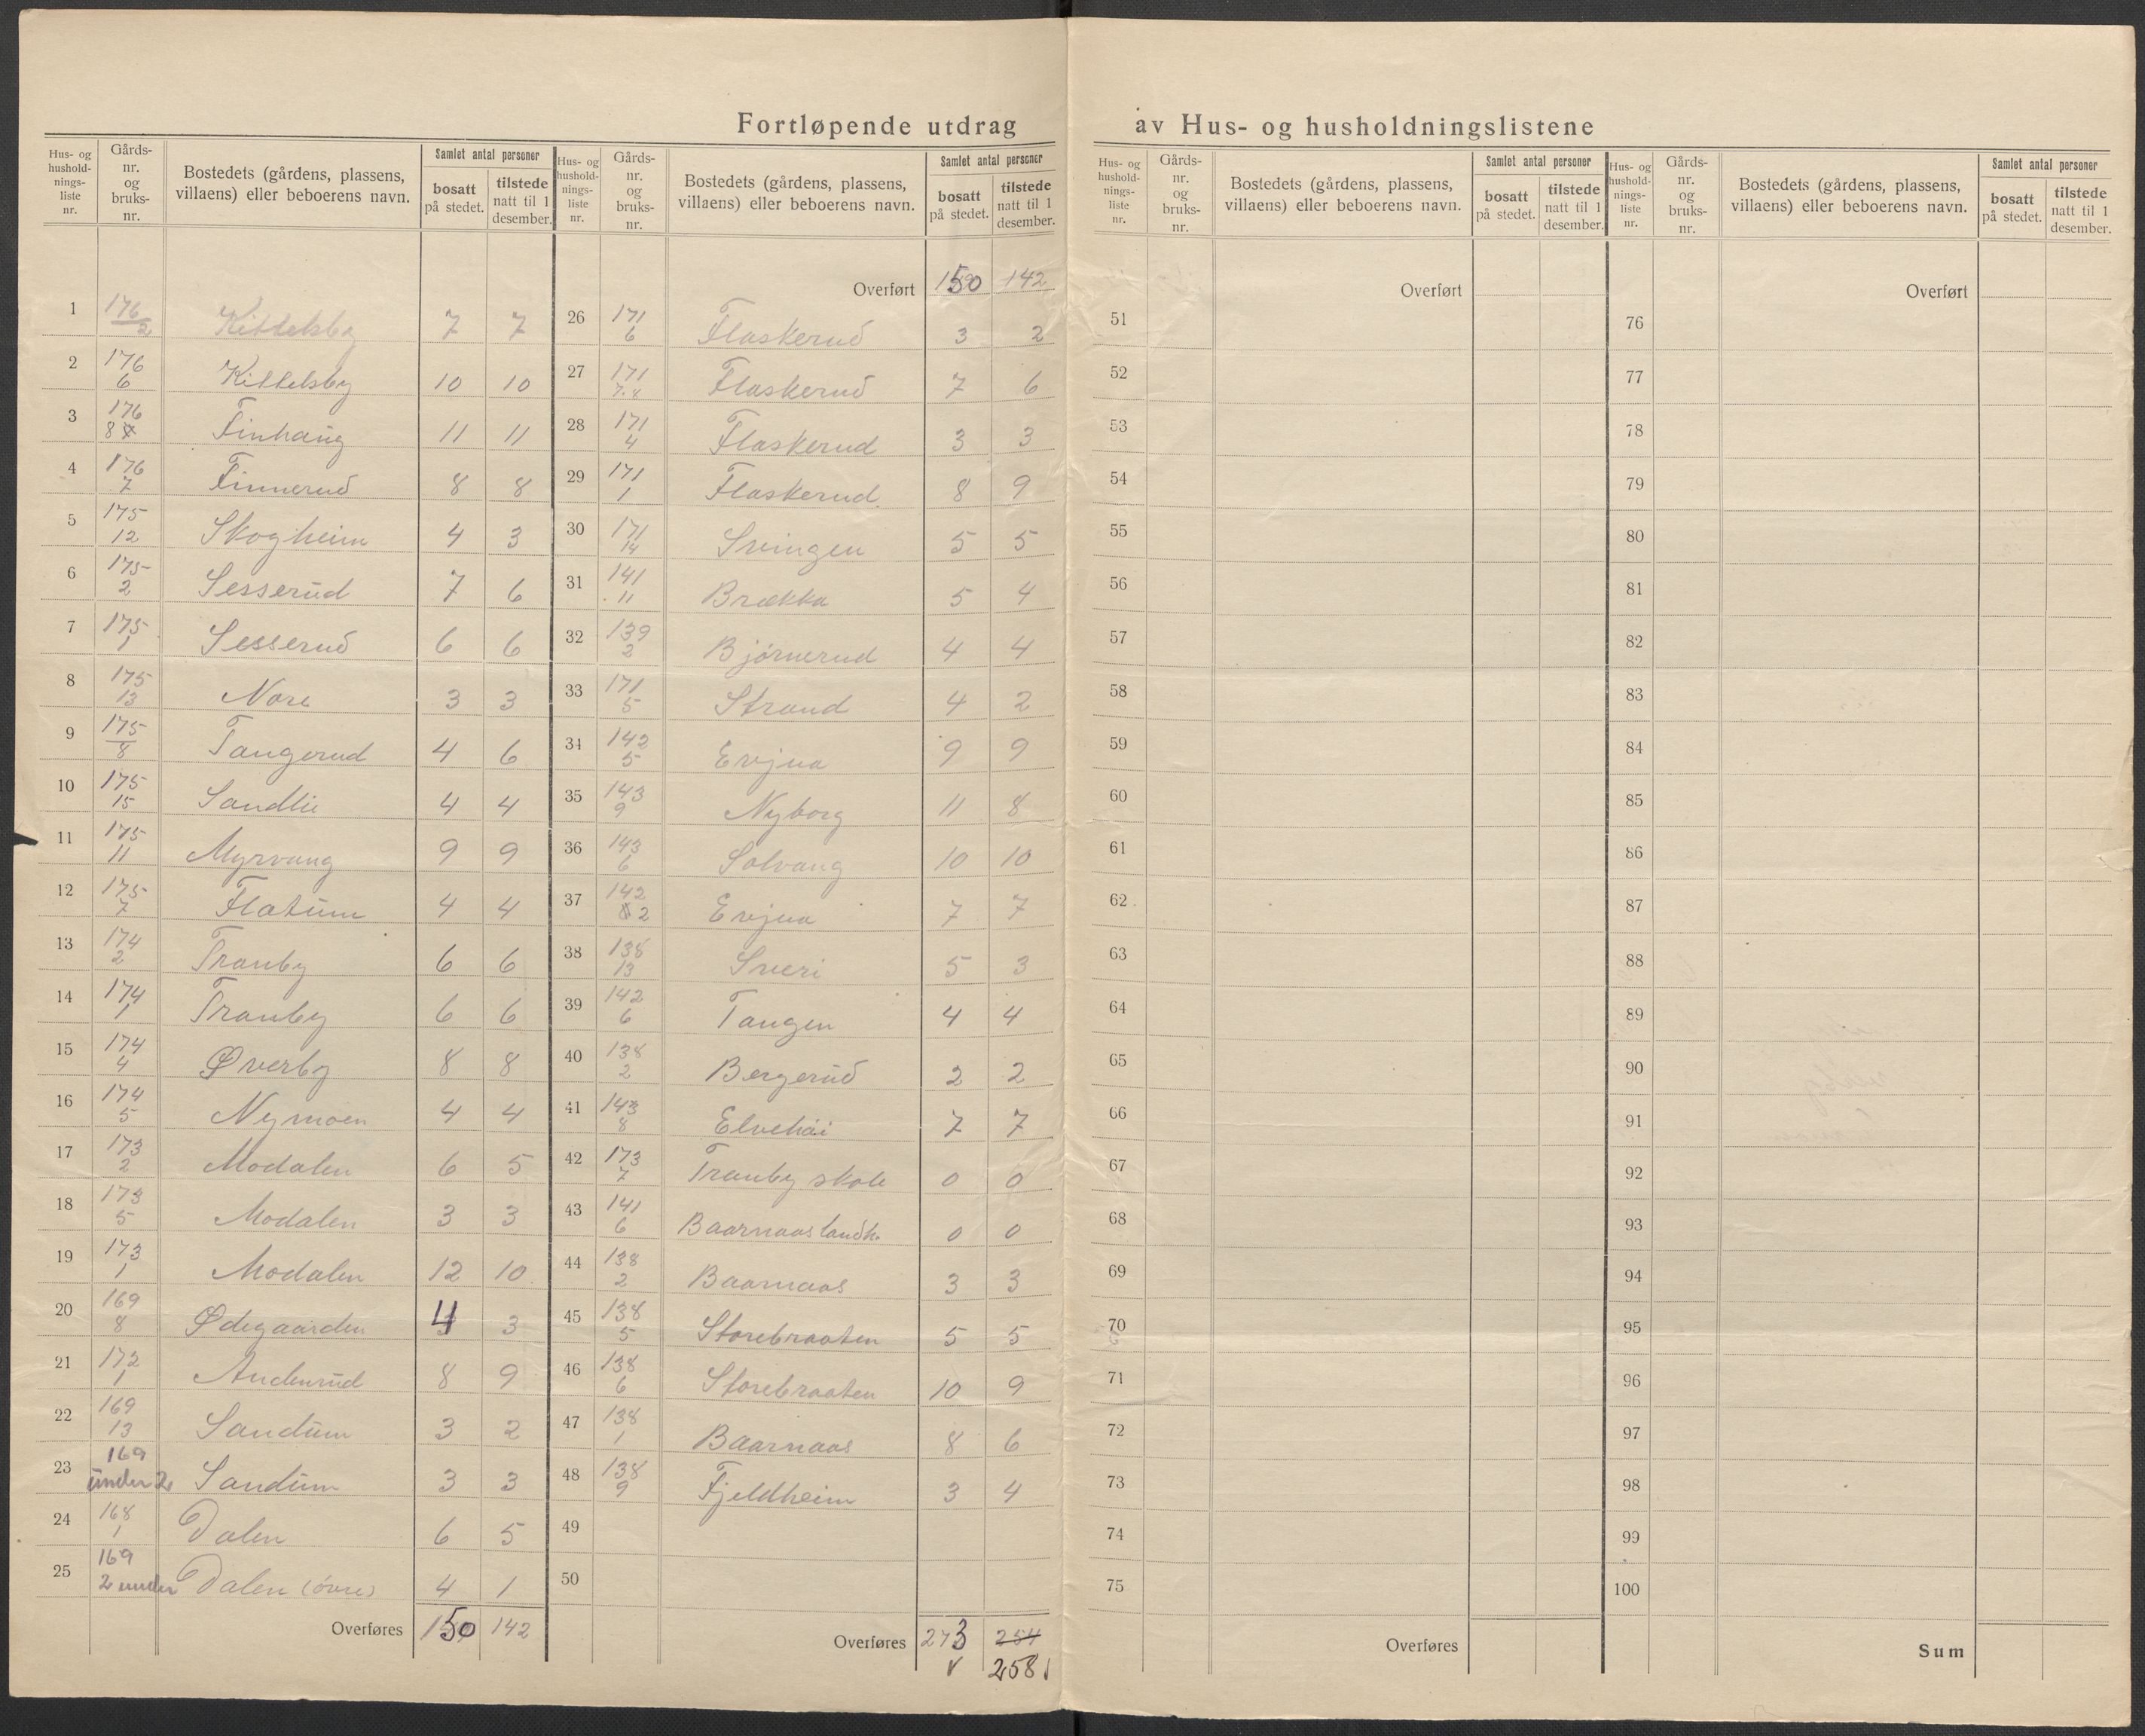 Fortløpende utdrag av Hus- og husholdningslistene
Hus- og husholdningsliste nr. | Gårds-nr. og bruks-nr. | Bostedets (gårdens, plassens, villaens) eller beboerens navn. | Samlet antal personer | bosatt på stedet. | tilstede natt til 1 desember.
1 176/2 Kittelsby 7 7
2 176/6 Kittelsby 10 10
3 176/8 Finhaug 11 11
4 176/7 Finnerud 8 8
5 175/12 Skogheim 4 3
6 175/2 Sesserud 7 6
7 175/1 Sesserud 6 6
8 175/13 Nore 3 3
9 175/8 Tangerud 4 6
10 175/15 Sandlie 4 4
11 175/11 Myrvang 9 9
12 175/7 Flatum 4 4
13 174/2 Tranby 6 6
14 174/1 Tranby 6 6
15 174/4 Øverby 8 8
16 174/5 Nymoen 4 4
17 173/2 Modalen 6 5
18 173/5 Modalen 3 3
19 173/1 Modalen 12 10
20 169/8 Ødegaarden 4 3
21 172/1 Andenrud 8 9
22 169/13 Sandum 3 2
23 169 under 2 Sandum 3 3
24 168/1 Dalen 6 5
25 169 2 under Dalen (øvre) 4 1
Overføres 150 142
Hus- og husholdningsliste nr. | Gårds-nr. og bruks-nr. | Bostedets (gårdens, plassens, villaens) eller beboerens navn. | Samlet antal personer | bosatt på stedet. | tilstede natt til 1 desember.
Overført 150 142
26 171/6 Flaskerud 3 2
27 171/7.8 Flaskerud 7 6
28 171/4 Flaskerud 3 3
29 171/1 Flaskerud 8 9
30 171/14 Svingen 5 5
31 141/11 Brækka 5 4
32 139/2 Bjørnerud 4 4
33 171/5 Strand 4 2
34 142/5 Evjua 9 9
35 143/9 Nyborg 11 8
36 143/6 Solvang 10 10
37 142/2 Evjua 7 7
38 138/13 Sveri 5 3
39 142/6 Tangen 4 4
40 138/2 Bergerud 2 2
41 143/8 Elvehøi 7 7
42 173/7 Tranby skole 0 0
43 141/6 Baarnaas landh. 0 0
44 138/2 Baarnaas 3 3
45 138/5 Storebraaten 5 5
46 138/6 Storebraaten 10 9
47 138/1 Baarnaas 8 6
48 138/9 Fjeldheim 3 4
49
50
Overføres 273 254
258
Hus- og husholdningsliste nr. | Gårds-nr. og bruks-nr. | Bostedets (gårdens, plassens, villaens) eller beboerens navn. | Samlet antal personer | bosatt på stedet. | tilstede natt til 1 desember.
Overført
51
52
53
54
55
56
57
58
59
60
61
62
63
64
65
66
67
68
69
70
71
72
73
74
75
Overføres
Hus- og husholdningsliste nr. | Gårds-nr. og bruks-nr. | Bostedets (gårdens, plassens, villaens) eller beboerens navn. | Samlet antal personer | bosatt på stedet. | tilstede natt til 1 desember.
Overført
76
77
78
79
80
81
82
83
84
85
86
87
88
89
90
91
92
93
94
95
96
97
98
99
100
Sum